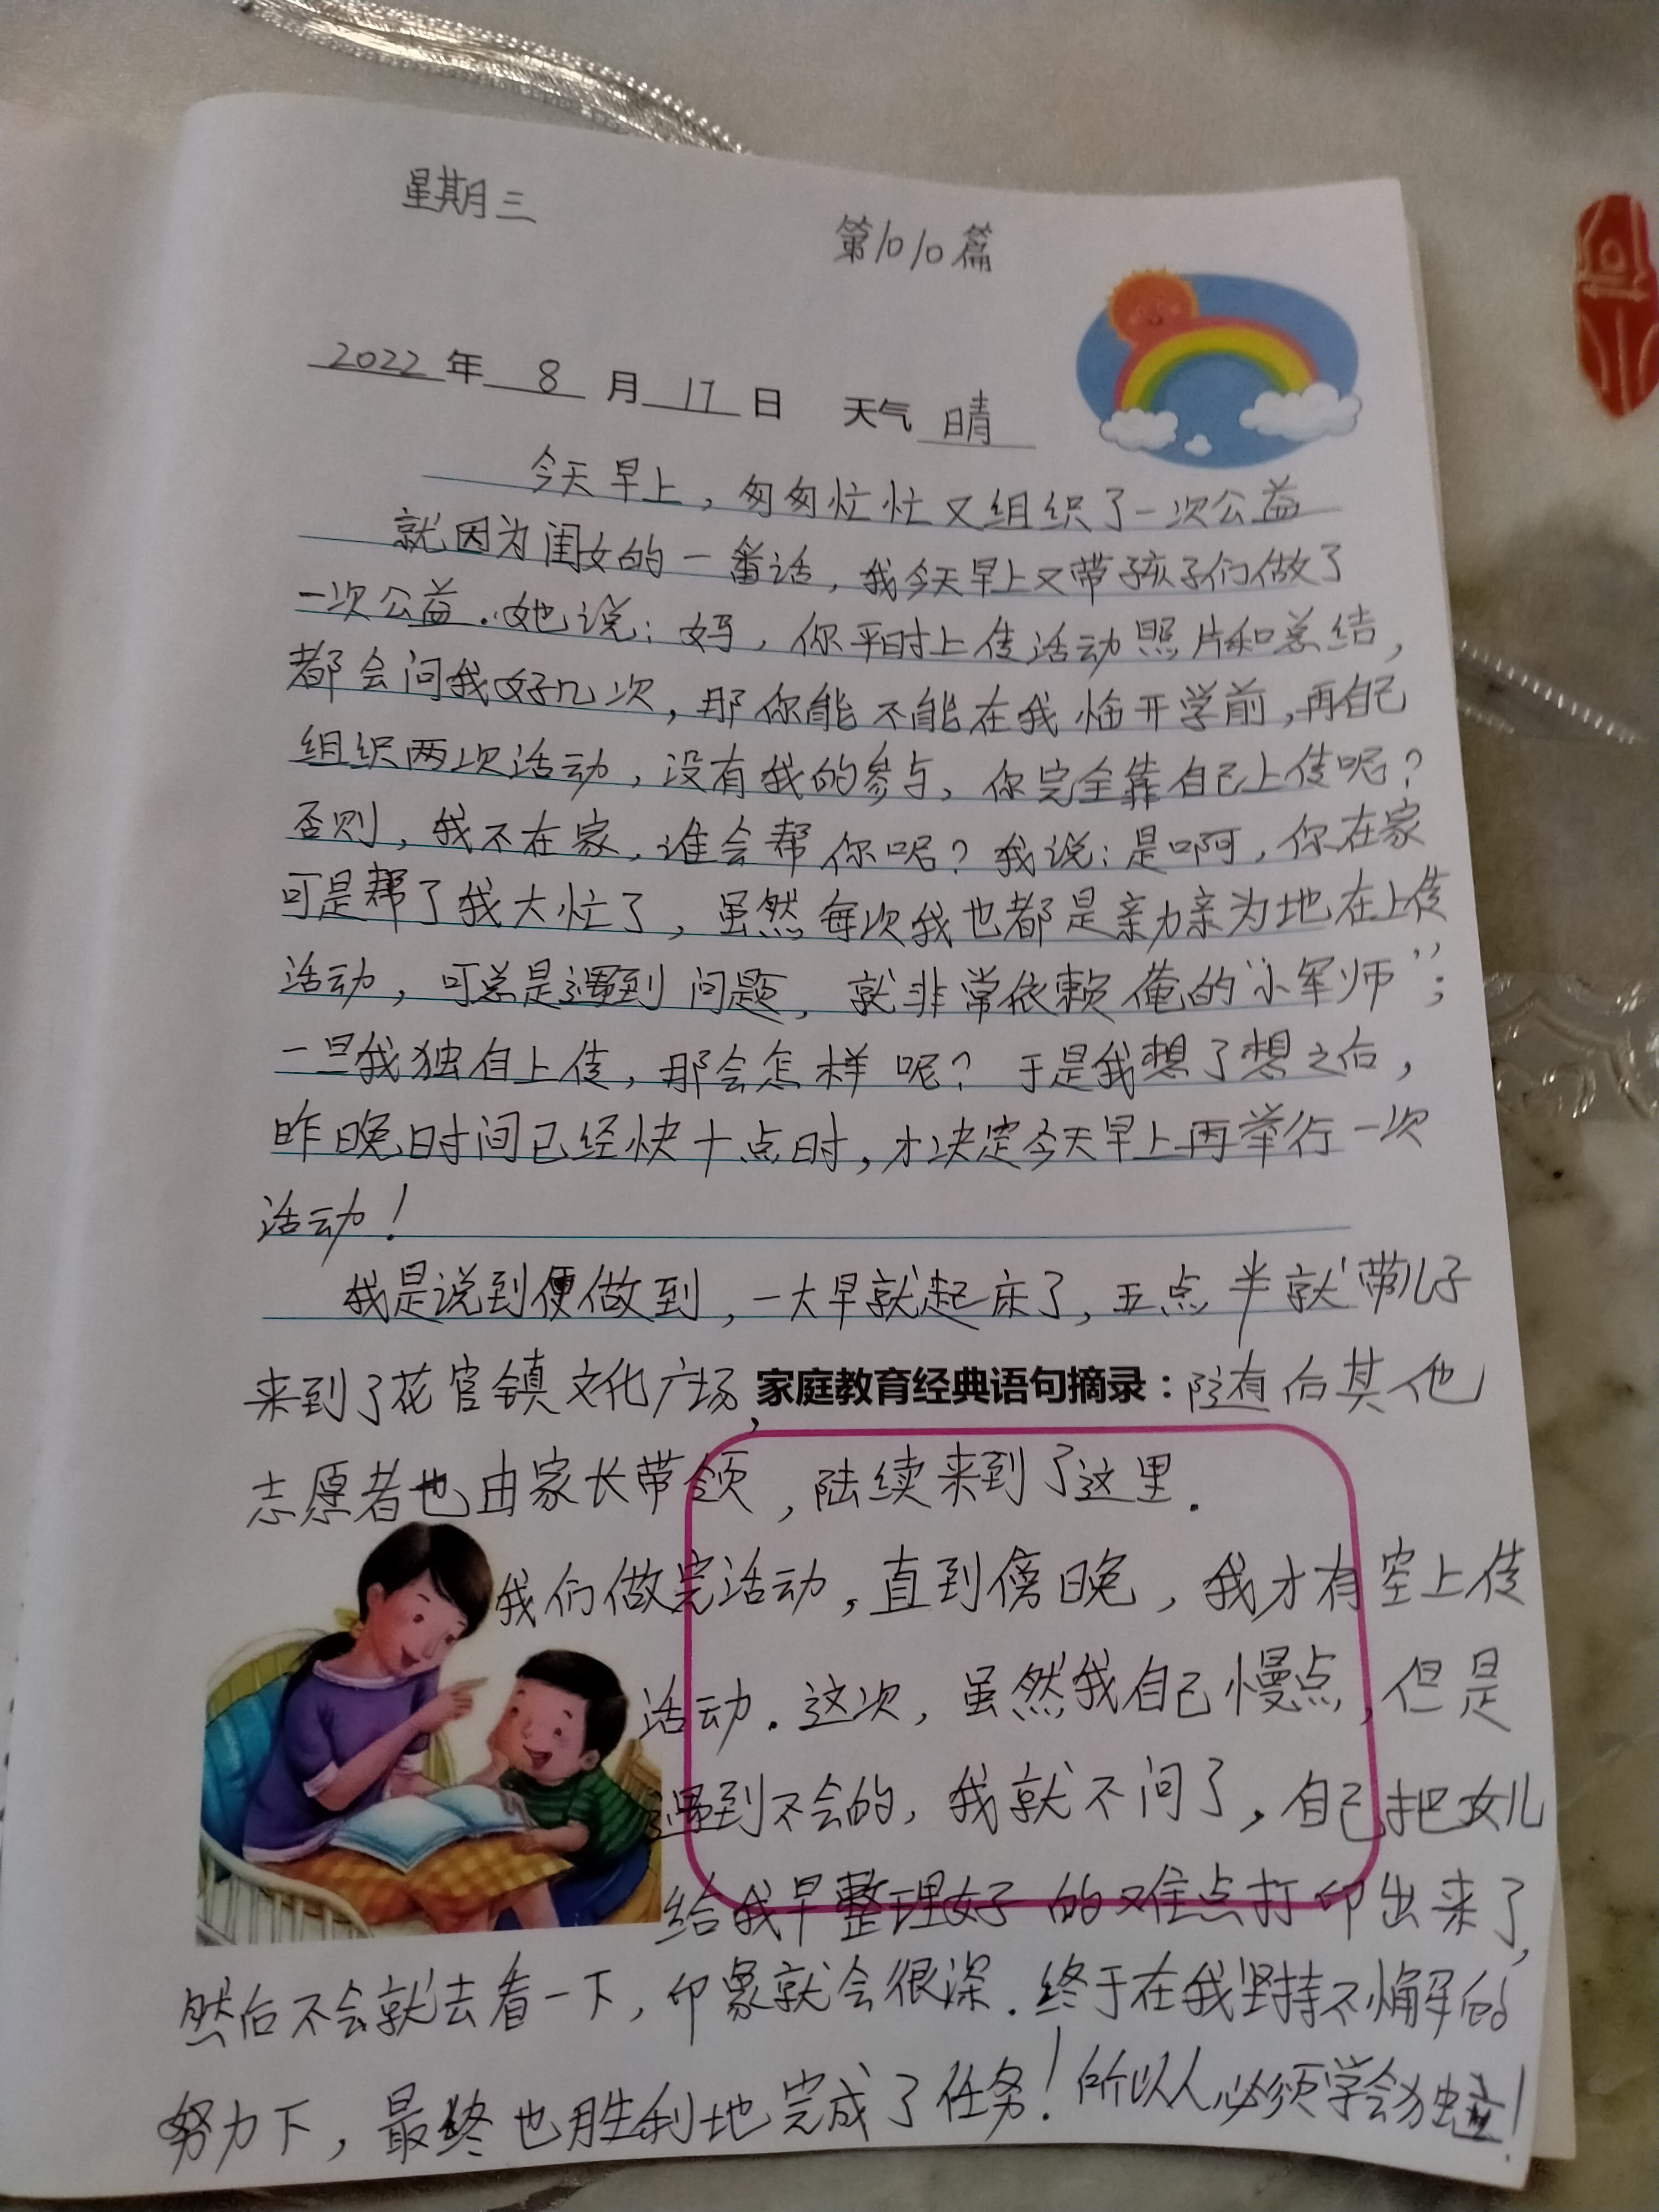 星期三
第1010篇
2022年 8 月 17 日 天气 晴
今天早上，匆匆忙忙又组织了一次公益
就因为闺女的一番话，我今天早上又带孩子们做了
一次公益.她说：妈，你平时上传活动照片和总结，
都会问我好几次，那你能不能在我临开学前，再自己
组织两次活动，没有我的参与，你完全靠自己上传呢？
否则，我不在家，谁会帮你呢？我说：是啊，你在家
可是帮了我大忙了，虽然每次我也都是亲力亲为地在上传
活动，可总是遇到问题，就非常依赖俺的“小军师”；
一旦我独自上传，那会怎样呢？于是我想了想之后，
昨晚时间已经快十点时，才决定今天早上再举行一次
活动！
我是说到便做到，一大早就起床了，五点半就带儿子
来到了花官镇文化广场，家庭教育经典语句摘录：随后其他
志愿者也由家长带领，陆续来到了这里.
我们做完活动，直到傍晚，我才有空上传
活动.这次，虽然我自己慢点，但是
遇到不会的，我就不问了，自己把女儿
给我早整理好的难点打印出来了，
然后不会就去看一下，印象就会很深.终于在我坚持不懈的
努力下，最终也胜利地完成了任务！所以人必须学会独立！